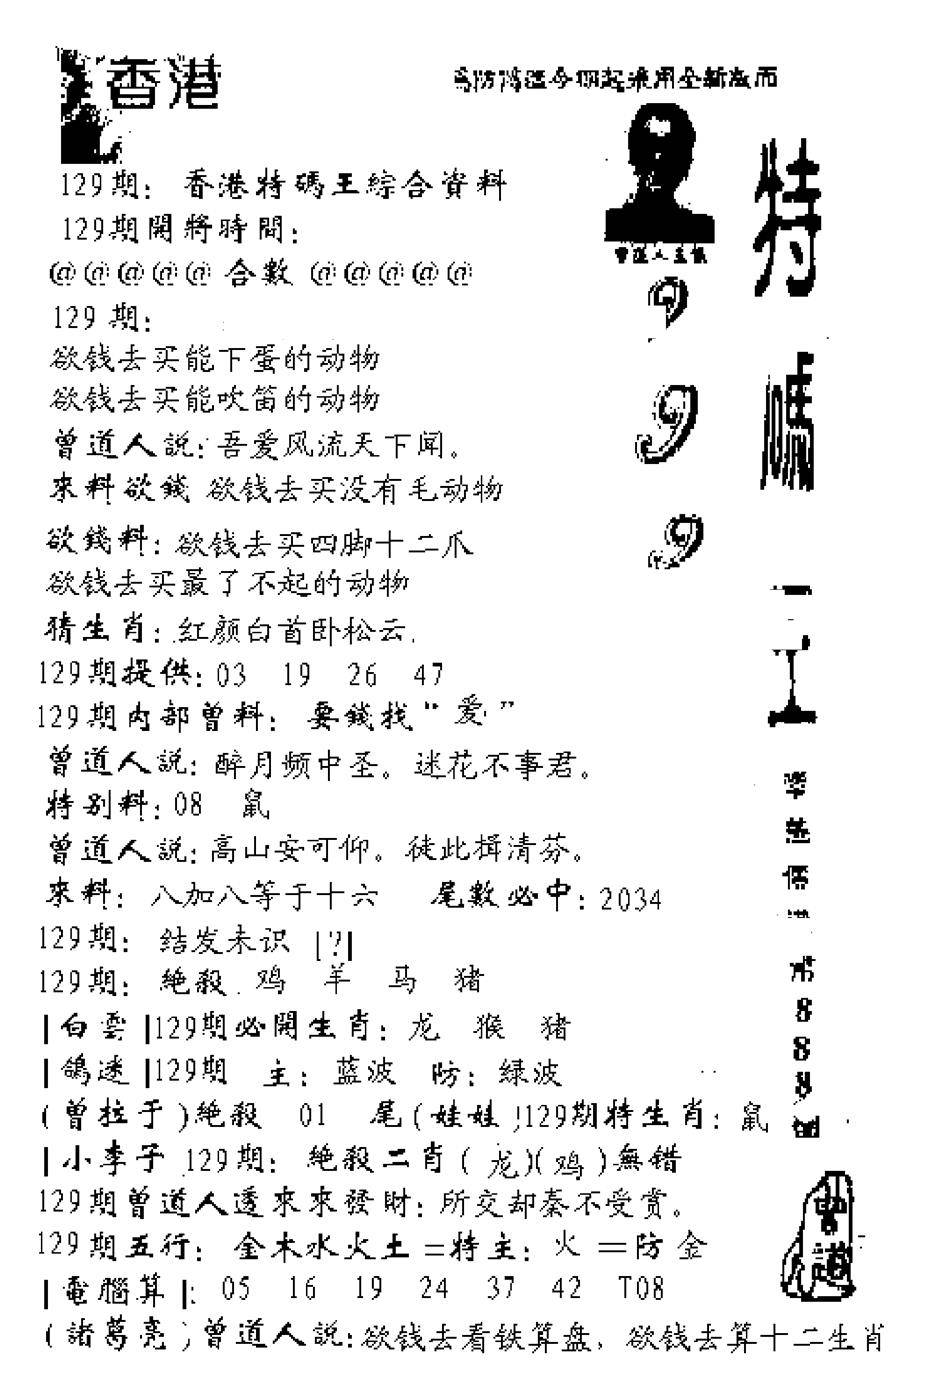 香港
129期: 香港特碼王綜合資料
129期開將時間:
@@@@@ 合數 @@@@@
129 期:
欲钱去买能下蛋的动物
欲钱去买能吹笛的动物
曾道人説: 吾爱风流天下闻。
來料欲錢 欲钱去买没有毛动物
欲錢料: 欲钱去买四脚十二爪
欲钱去买最了不起的动物
猜生肖: 红颜白首卧松云.
129期提供: 03 19 26 47
129期内部曾料: 要錢找“爱”
曾道人説: 醉月频中圣。迷花不事君。
特别料: 08 鼠
曾道人説: 高山安可仰。徒此揖清芬。
來料: 八加八等于十六 尾數必中: 2034
129期: 结发未识 [?]
129期: 絶殺. 鸡 羊 马 猪
|白雲|129期必開生肖: 龙 猴 猪
|鴿迷|129期 主: 蓝波 防: 绿波
(曾拉于)絶殺 01 尾(娃娃)129期特生肖: 鼠
|小李子 129期: 絶殺二肖(龙)(鸡)無错
129期曾道人透來來發財: 所交却秦不受赏。
129期五行: 金木水火土=特主: 火 =防金
|電腦算|: 05 16 19 24 37 42 T08
(諸葛亮)曾道人説:欲钱去看铁算盘, 欲钱去算十二生肖
特
碼
王
9
9
9
8
8
8
曾道